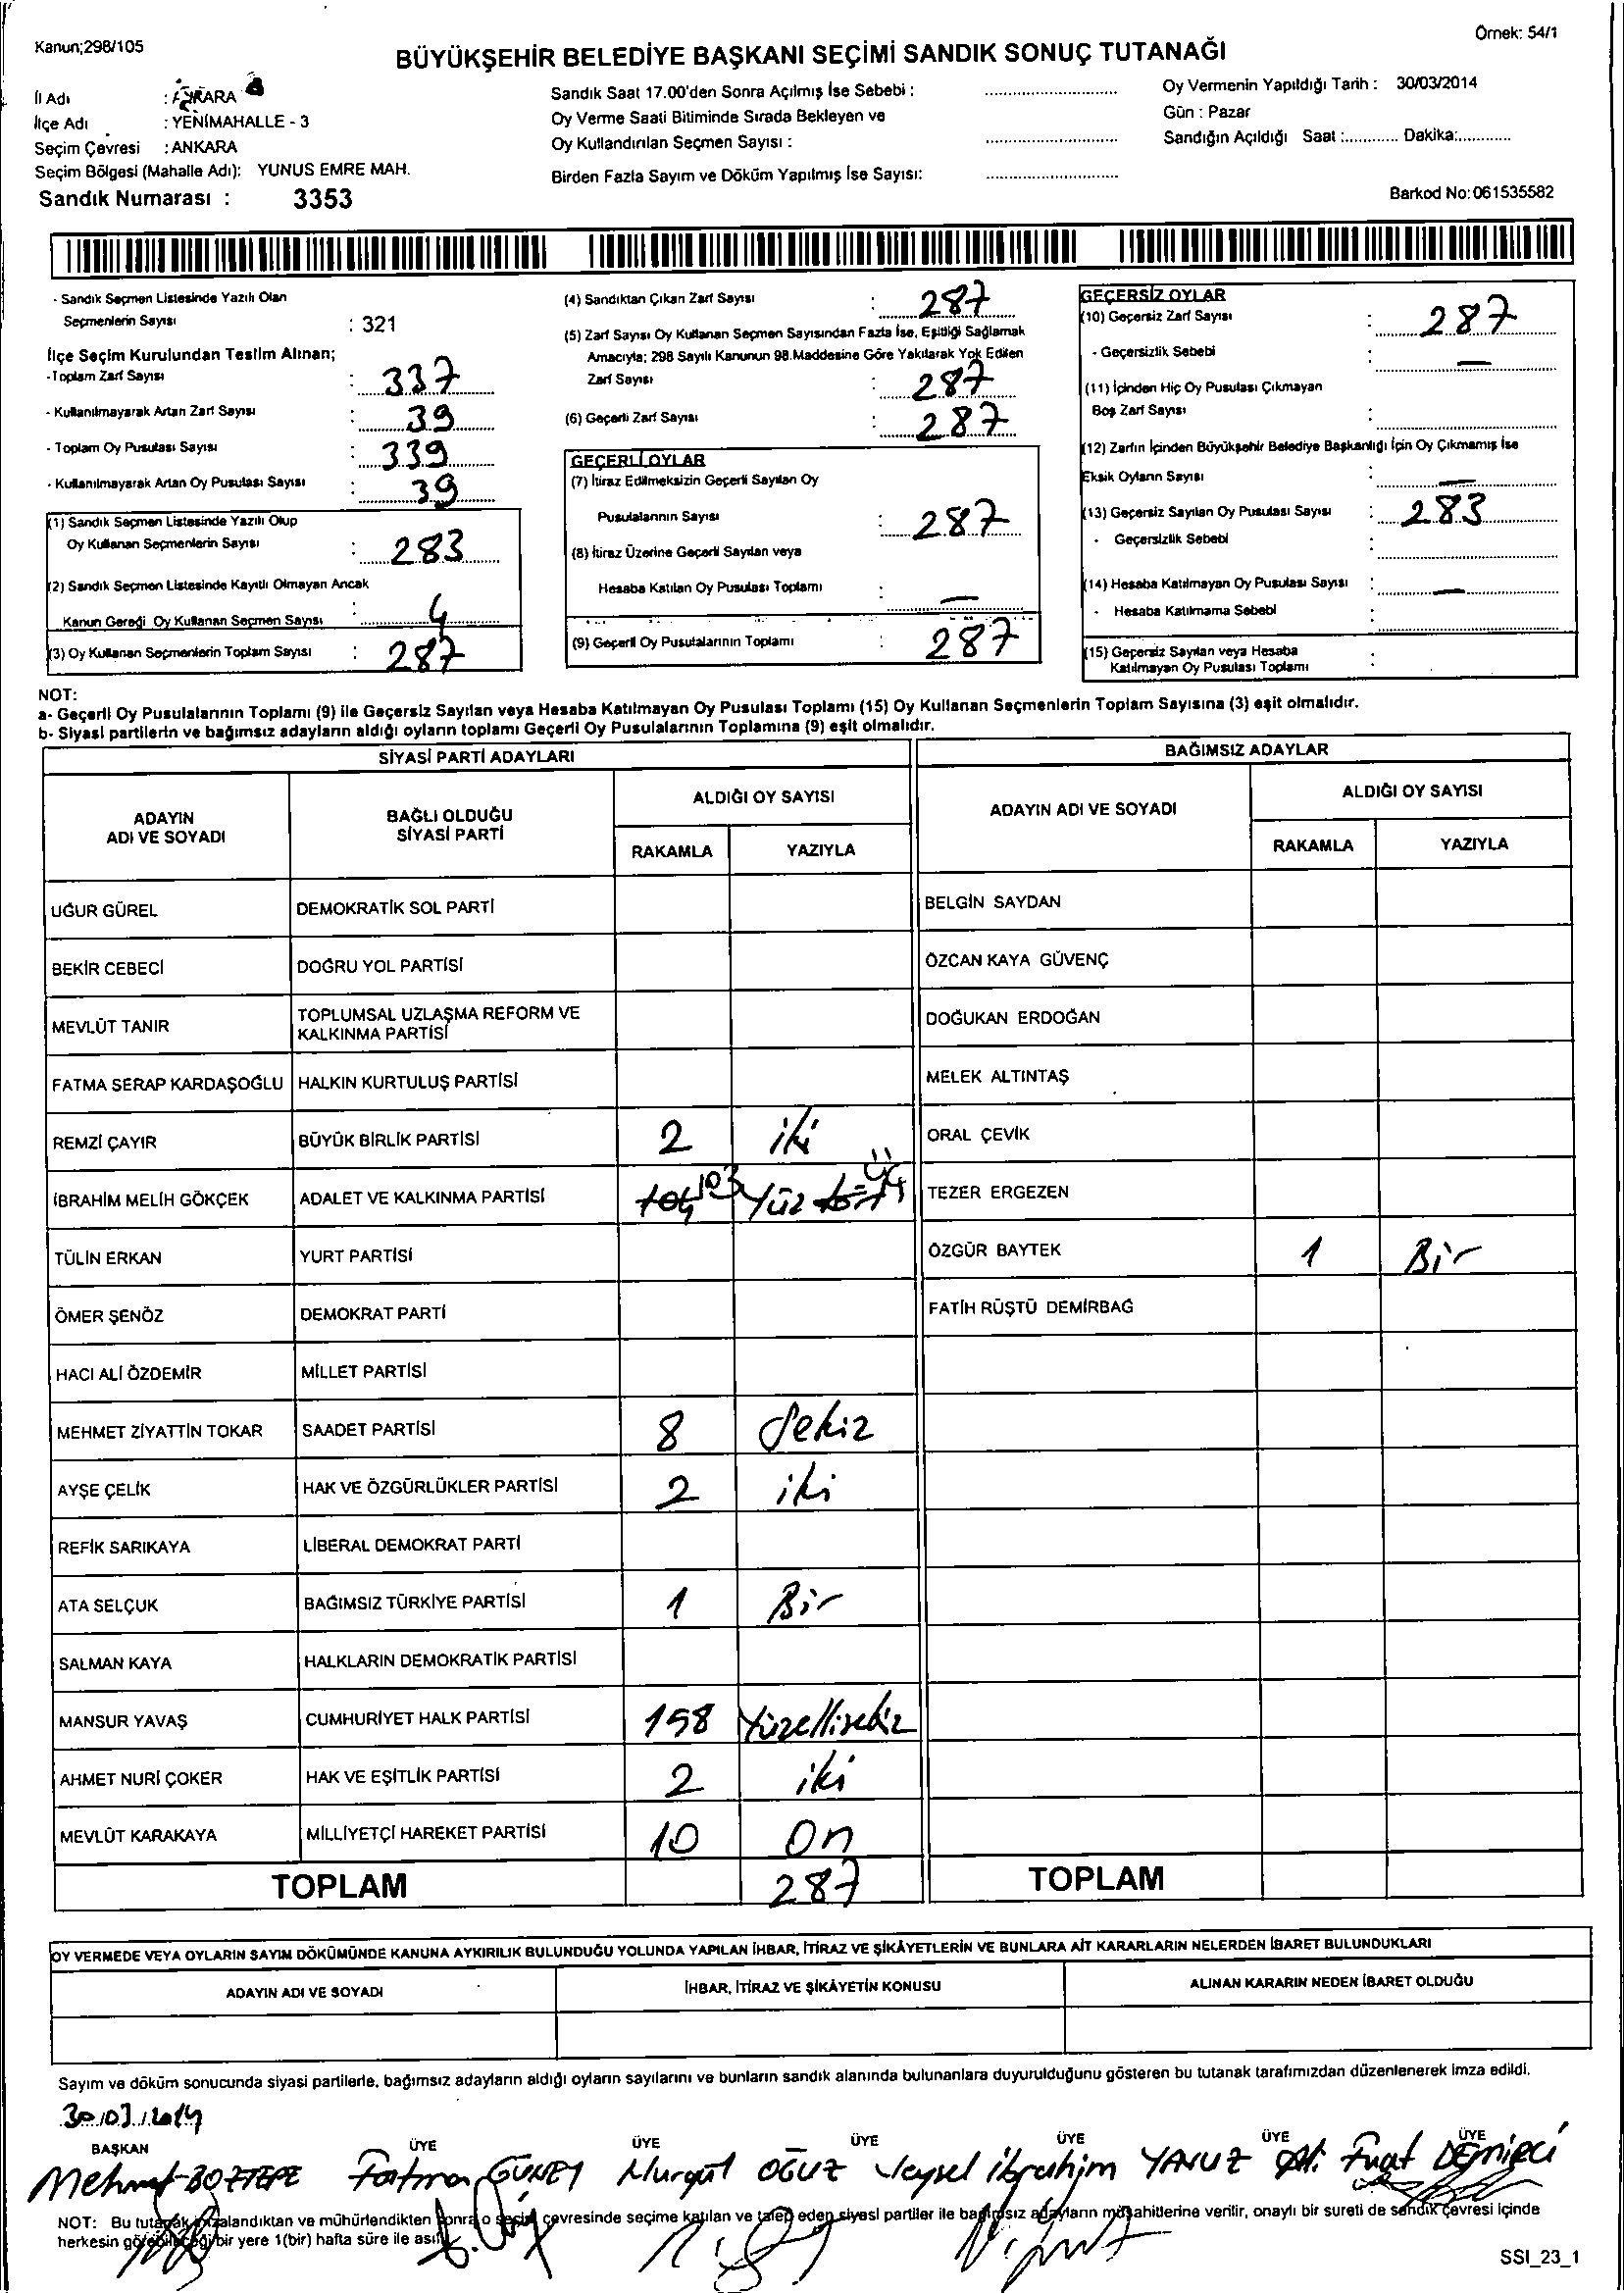 Kanun;298/105
Örnek: 54/1
BÜYÜKŞEHİR BELEDİYE BAŞKANI SEÇİMİ SANDIK SONUÇ TUTANAĞI
İl Adı : ANKARA
İlçe Adı : YENİMAHALLE - 3
Seçim Çevresi : ANKARA
Seçim Bölgesi (Mahalle Adı): YUNUS EMRE MAH.
Sandık Numarası : 3353
Sandık Saat 17.00'den Sonra Açılmış İse Sebebi :
Oy Verme Saati Bitiminde Sırada Bekleyen ve
Oy Kullandırılan Seçmen Sayısı :
Birden Fazla Sayım ve Döküm Yapılmış İse Sayısı:
Oy Vermenin Yapıldığı Tarih : 30/03/2014
Gün : Pazar
Sandığın Açıldığı Saat :............ Dakika:............
Barkod No:061535582
- Sandık Seçmen Listesinde Yazılı Olan
Seçmenlerin Sayısı : 321
İlçe Seçim Kurulundan Teslim Alınan;
-Toplam Zarf Sayısı : 337
- Kullanılmayarak Artan Zarf Sayısı : 39
- Toplam Oy Pusulası Sayısı : 339
- Kullanılmayarak Artan Oy Pusulası Sayısı : 39
(1) Sandık Seçmen Listesinde Yazılı Olup
Oy Kullanan Seçmenlerin Sayısı : 283
(2) Sandık Seçmen Listesinde Kayıtlı Olmayan Ancak
Kanun Gereği Oy Kullanan Seçmen Sayısı : 4
(3) Oy Kullanan Seçmenlerin Toplam Sayısı : 287
(4) Sandıktan Çıkan Zarf Sayısı : 287
(5) Zarf Sayısı Oy Kullanan Seçmen Sayısından Fazla İse, Eşitliği Sağlamak
Amacıyla; 298 Sayılı Kanunun 98.Maddesine Göre Yakılarak Yok Edilen
Zarf Sayısı : 287
(6) Geçerli Zarf Sayısı : 287
GEÇERLİ OYLAR
(7) İtiraz Edilmeksizin Geçerli Sayılan Oy
Pusulalarının Sayısı : 287
(8) İtiraz Üzerine Geçerli Sayılan veya
Hesaba Katılan Oy Pusulası Toplamı : —
(9) Geçerli Oy Pusulalarının Toplamı : 287
GEÇERSİZ OYLAR
(10) Geçersiz Zarf Sayısı : 287
- Geçersizlik Sebebi : —
(11) İçinden Hiç Oy Pusulası Çıkmayan
Boş Zarf Sayısı :
(12) Zarfın İçinden Büyükşehir Belediye Başkanlığı İçin Oy Çıkmamış İse
Eksik Oyların Sayısı : —
(13) Geçersiz Sayılan Oy Pusulası Sayısı : 283
- Geçersizlik Sebebi :
(14) Hesaba Katılmayan Oy Pusulası Sayısı : —
- Hesaba Katılmama Sebebi :
(15) Geçersiz Sayılan veya Hesaba
Katılmayan Oy Pusulası Toplamı :
NOT:
a- Geçerli Oy Pusulalarının Toplamı (9) ile Geçersiz Sayılan veya Hesaba Katılmayan Oy Pusulası Toplamı (15) Oy Kullanan Seçmenlerin Toplam Sayısına (3) eşit olmalıdır.
b- Siyasi partilerin ve bağımsız adayların aldığı oyların toplamı Geçerli Oy Pusulalarının Toplamına (9) eşit olmalıdır.
SİYASİ PARTİ ADAYLARI
ADAYIN ADI VE SOYADI
BAĞLI OLDUĞU SİYASİ PARTİ
ALDIĞI OY SAYISI
RAKAMLA YAZIYLA
UĞUR GÜREL DEMOKRATİK SOL PARTİ
BEKİR CEBECİ DOĞRU YOL PARTİSİ
MEVLÜT TANIR TOPLUMSAL UZLAŞMA REFORM VE KALKINMA PARTİSİ
FATMA SERAP KARDAŞOĞLU HALKIN KURTULUŞ PARTİSİ
REMZİ ÇAYIR BÜYÜK BİRLİK PARTİSİ 2 iki
İBRAHİM MELİH GÖKÇEK ADALET VE KALKINMA PARTİSİ 104 103 Yüz dört Üç
TÜLİN ERKAN YURT PARTİSİ
ÖMER ŞENÖZ DEMOKRAT PARTİ
HACI ALİ ÖZDEMİR MİLLET PARTİSİ
MEHMET ZİYATTİN TOKAR SAADET PARTİSİ 8 Sekiz
AYŞE ÇELİK HAK VE ÖZGÜRLÜKLER PARTİSİ 2 iki
REFİK SARIKAYA LİBERAL DEMOKRAT PARTİ
ATA SELÇUK BAĞIMSIZ TÜRKİYE PARTİSİ 1 Bir
SALMAN KAYA HALKLARIN DEMOKRATİK PARTİSİ
MANSUR YAVAŞ CUMHURİYET HALK PARTİSİ 158 Yüzellisekiz
AHMET NURİ ÇOKER HAK VE EŞİTLİK PARTİSİ 2 iki
MEVLÜT KARAKAYA MİLLİYETÇİ HAREKET PARTİSİ 10 On
TOPLAM 287
BAĞIMSIZ ADAYLAR
ADAYIN ADI VE SOYADI
ALDIĞI OY SAYISI
RAKAMLA YAZIYLA
BELGİN SAYDAN
ÖZCAN KAYA GÜVENÇ
DOĞUKAN ERDOĞAN
MELEK ALTINTAŞ
ORAL ÇEVİK
TEZER ERGEZEN
ÖZGÜR BAYTEK 1 Bir
FATİH RÜŞTÜ DEMİRBAĞ
TOPLAM
OY VERMEDE VEYA OYLARIN SAYIM DÖKÜMÜNDE KANUNA AYKIRILIK BULUNDUĞU YOLUNDA YAPILAN İHBAR, İTİRAZ VE ŞİKAYETLERİN VE BUNLARA AİT KARARLARIN NELERDEN İBARET BULUNDUKLARI
ADAYIN ADI VE SOYADI
İHBAR, İTİRAZ VE ŞİKAYETİN KONUSU
ALINAN KARARIN NEDEN İBARET OLDUĞU
Sayım ve döküm sonucunda siyasi partilerle, bağımsız adayların aldığı oyların sayılarını ve bunların sandık alanında bulunanlara duyurulduğunu gösteren bu tutanak tarafımızdan düzenlenerek imza edildi.
30.03.2014
BAŞKAN ÜYE ÜYE ÜYE ÜYE ÜYE ÜYE
Mehmet BOZTEPE Fatma GÜNEY Nurgül OĞUZ Veysel ibrahim YAVUZ Ali Fuat
NOT: Bu tutanak imzalandıktan ve mühürlendikten sonra o seçim çevresinde seçime katılan ve talep eden siyasi partiler ile bağımsız adayların müşahitlerine verilir, onaylı bir sureti de sandık çevresi içinde
herkesin görebileceği bir yere 1(bir) hafta süre ile asılır.
SSI_23_1